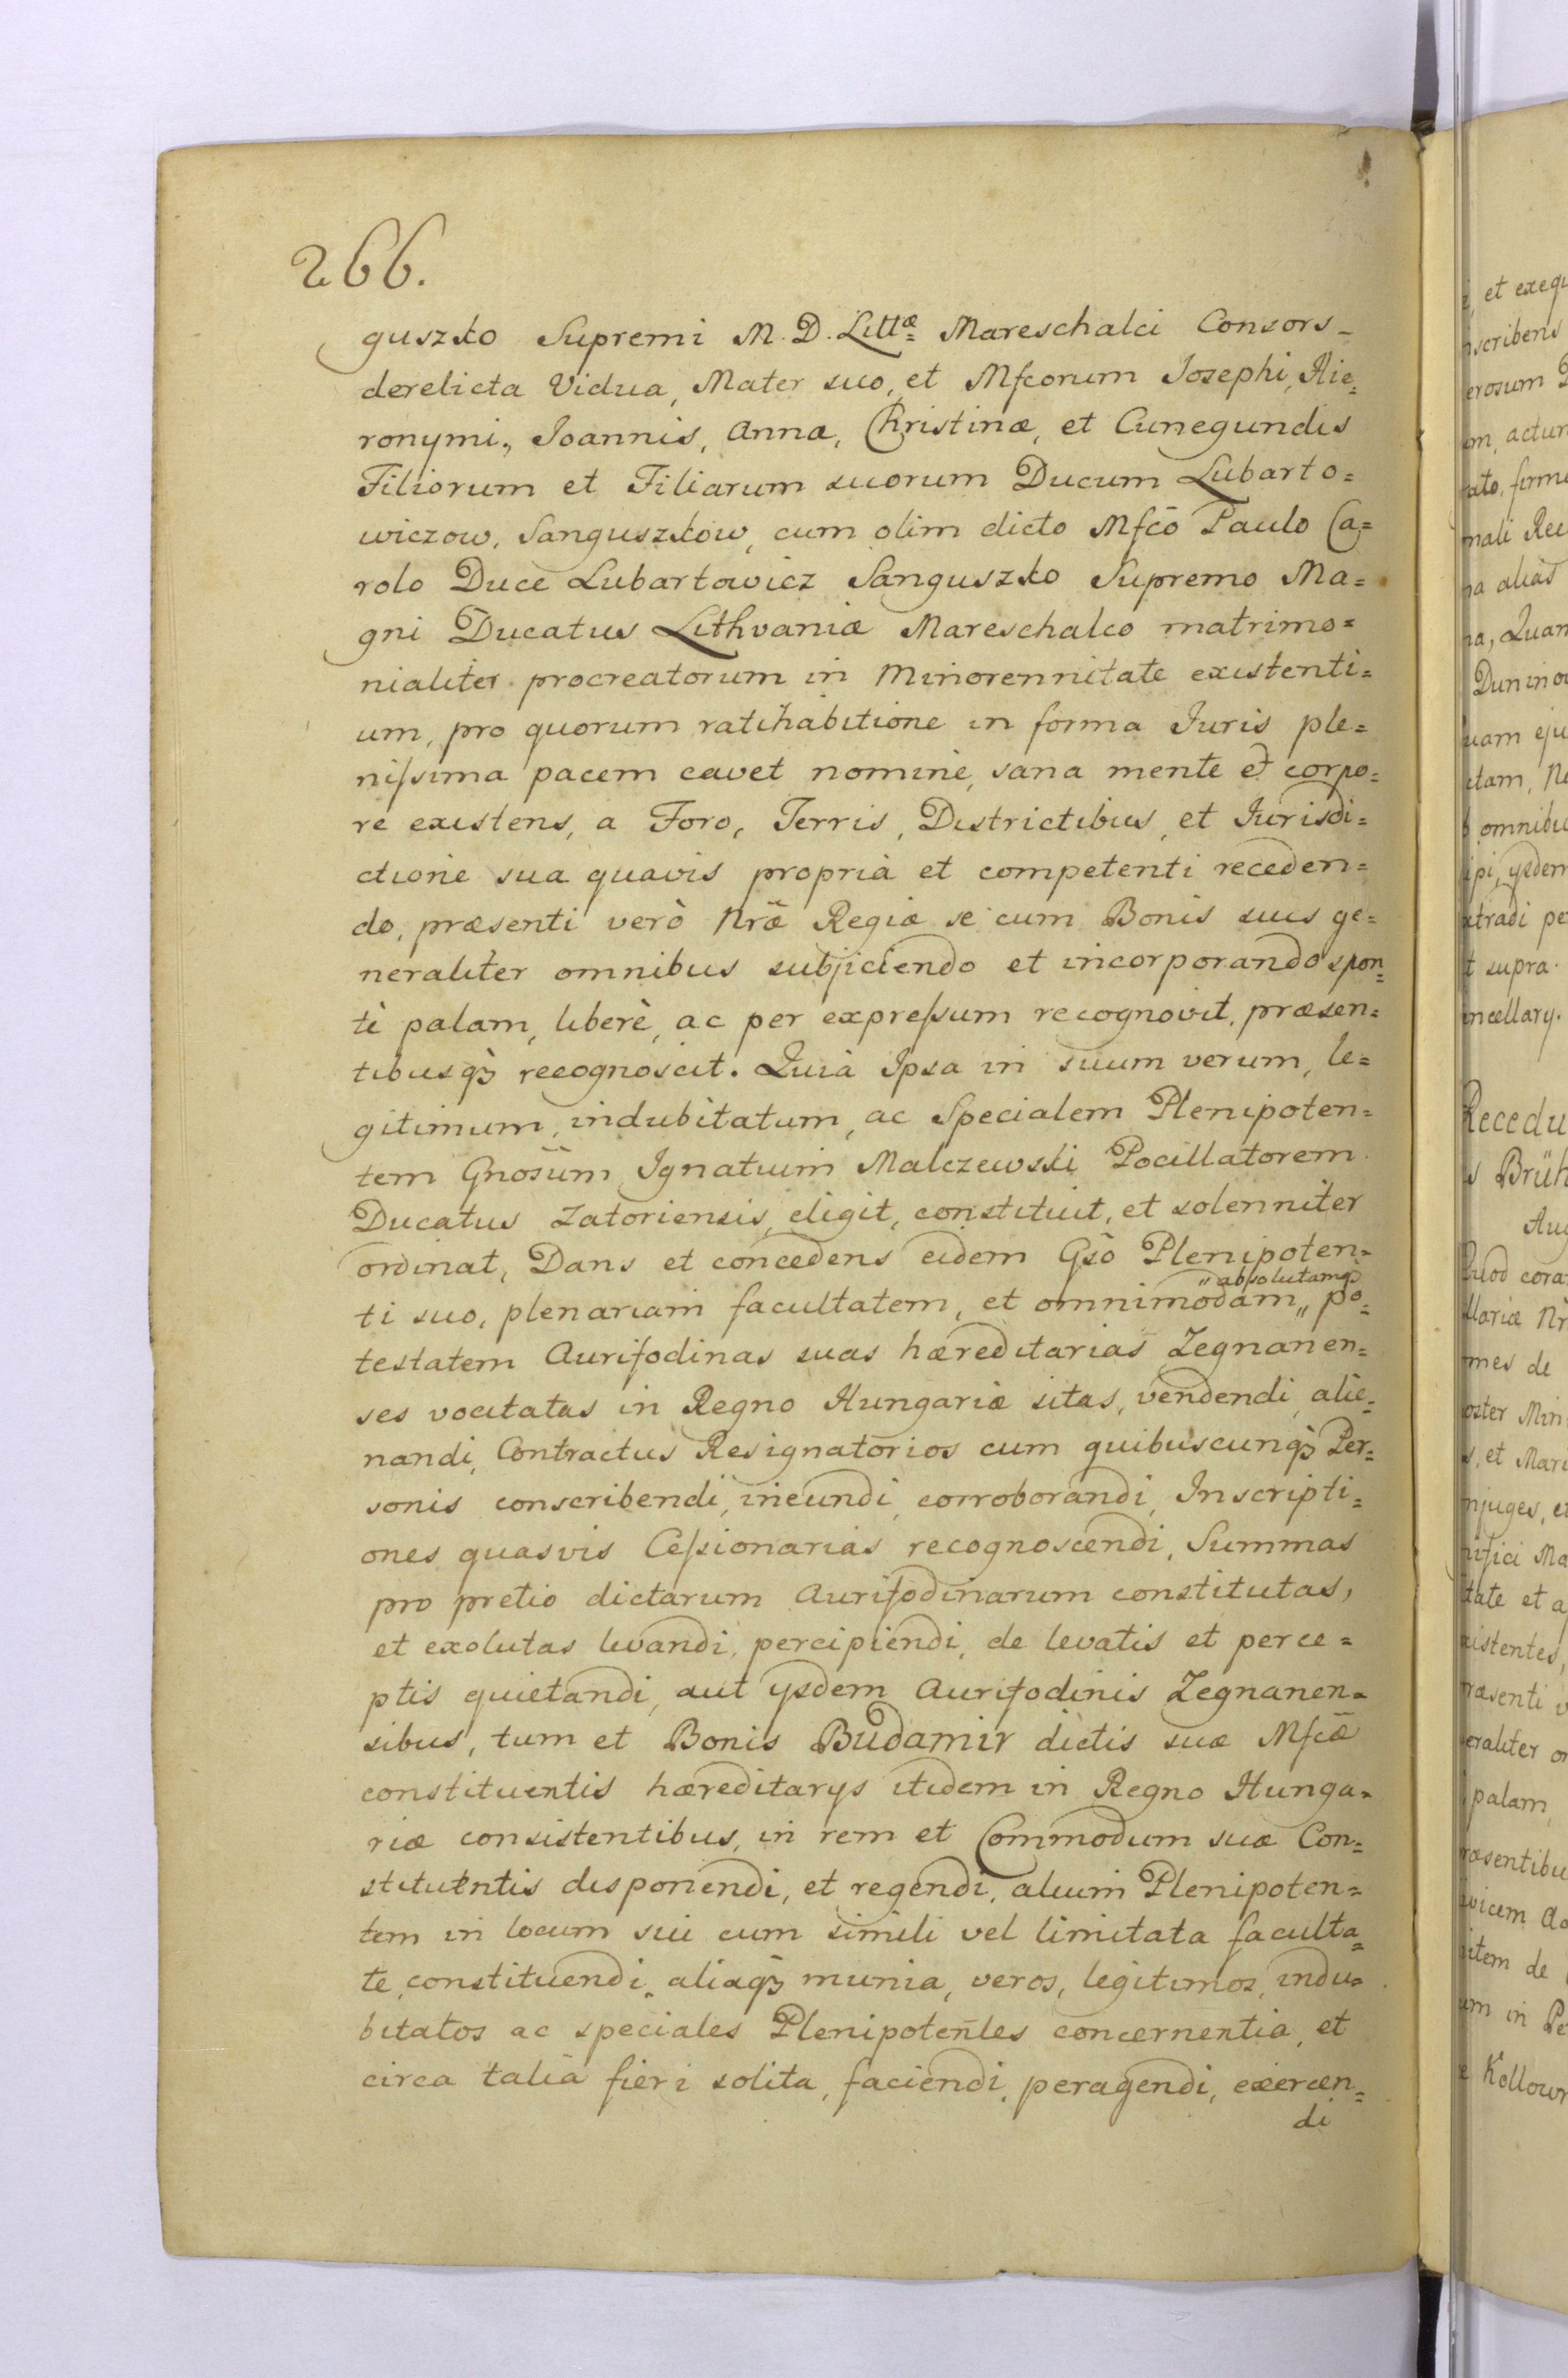 266.
guszko Supremi M. D. Littæ Mareschalci Consors
derelicta Vidua, Mater suo, et Mfcorum Josephi, Hie=
ronymi, Joannis, Annæ, Christinæ, et Cunegundis
Filiorum et Filiarum suorum Ducum Lubarto=
wiczow, Sanguszkow, cum olim dicto Mfcō Paulo Ca=
rolo Duce Lubartowicz Sanguszko Supremo Ma=
gni Ducatus Lithvaniæ Mareschalco matrimo=
nialiter procreatorum in Minorennitate existenti=
um, pro quorum ratihabitione in forma Juris ple=
nissima pacem cavet nomine, sana mente et corpo=
re existens, a Foro, Terris, Districtibus, et Jurisdi=
ctione sua quavis propria et competenti receden=
do, præsenti verò Nrã Regiæ se cum Bonis suis ge=
neraliter omnibus subjiciendo et incorporando spon=
tè palam, liberè, ac per expressum recognovit, præsen=
tibusq3 recognoscit. Quia Ipsa in suum verum, le=
gitimum, indubitatum, ac Specialem Plenipoten=
tem Gnosūm Ignatium Malczewski Pocillatorem
Ducatus Zatoriensis, eligit, constituit, et solenniter
ordinat, Dans et concedens eidem Gsō Plenipoten=
ti suo, plenariam facultatem, et omnimodam " po=
" absolutamq3
testatem Aurifodinas suas hæreditarias Zegnanen=
ses vocitatas in Regno Hungariæ sitas, vendendi, alie=
nandi, Contractus Resignatorios cum quibuscunq3 Per=
sonis conscribendi, ineundi, corroborandi, Inscripti=
ones quasvis Cessionarias recognoscendi, Summas
pro pretio dictarum Aurifodinarum constitutas,
et exolutas levandi, percipiendi, de levatis et perce=
ptis quietandi, aut ysdem Aurifodinis Zegnanen=
sibus, tum et Bonis Budamir dictis suæ Mfcæ
constituentis hæreditarys itidem in Regno Hunga=
riæ consistentibus, in rem et Commodum suæ Con=
stituentis disponendi, et regendi, alium Plenipoten=
tem in locum sui cum simili vel limitata faculta=
te, constituendi, aliaq3 munia, veros, legitimos, indu=
bitatos ac speciales Plenipoteñles concernentia, et
circa talia fieri solita, faciendi, peragendi, exercen=
di